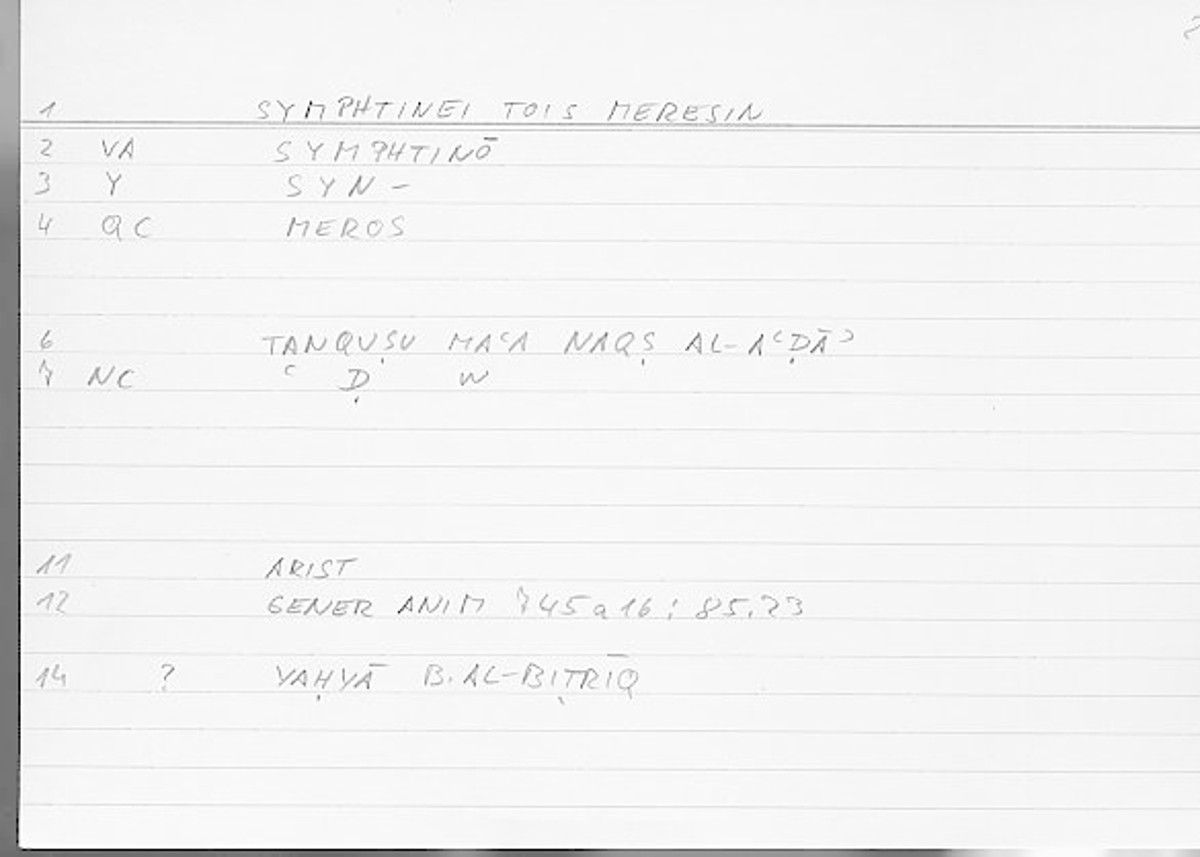 1 SYMPHTINEI TOIS MERESIN
2 VA SYMPHTINŌ
3 Y SYN-
4 QC MEROS
6 TANQUṢU MAʿA NAQṢ AL-AʿḌĀʾ
7 NC ʿ Ḍ W
11 ARIST
12 GENER ANIM 745a16; 85.23
14 ? YAḤYĀ B. AL-BIṬRĪQ